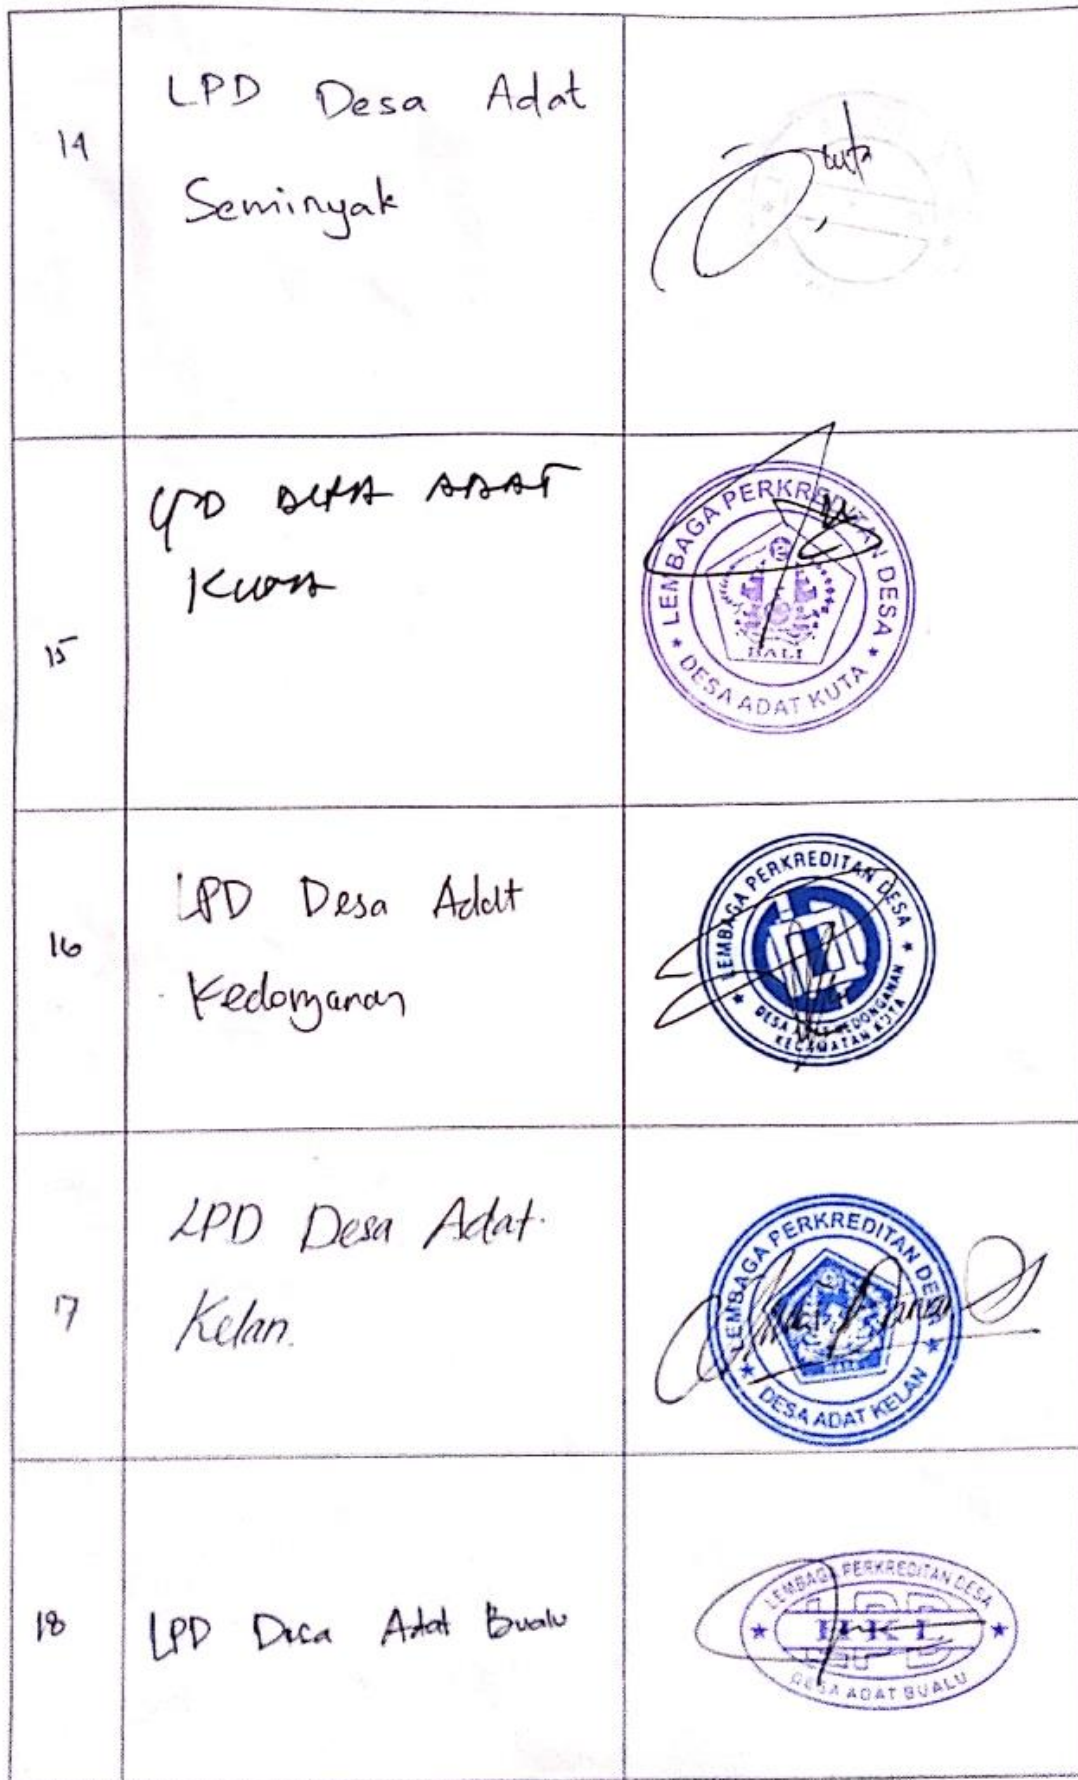 14
LPD Desa Adat
Seminyak
15
LPD DESA ADAT
KUTA
LEMBAGA PERKREDITAN DESA
BALI
DESA ADAT KUTA
16
LPD Desa Adat
Kedonganan
LEMBAGA PERKREDITAN DESA
DESA ADAT KEDONGANAN
KECAMATAN KUTA
17
LPD Desa Adat.
Kelan.
LEMBAGA PERKREDITAN DESA
DESA ADAT KELAN
18
LPD Desa Adat Bualu
LEMBAGA PERKREDITAN DESA
LPD
DESA ADAT BUALU